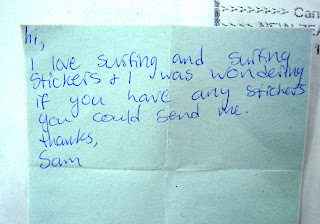 hi,
I love surfing and surfing
stickers & I was wondering
if you have any stickers
you could send me.
thanks,
Sam